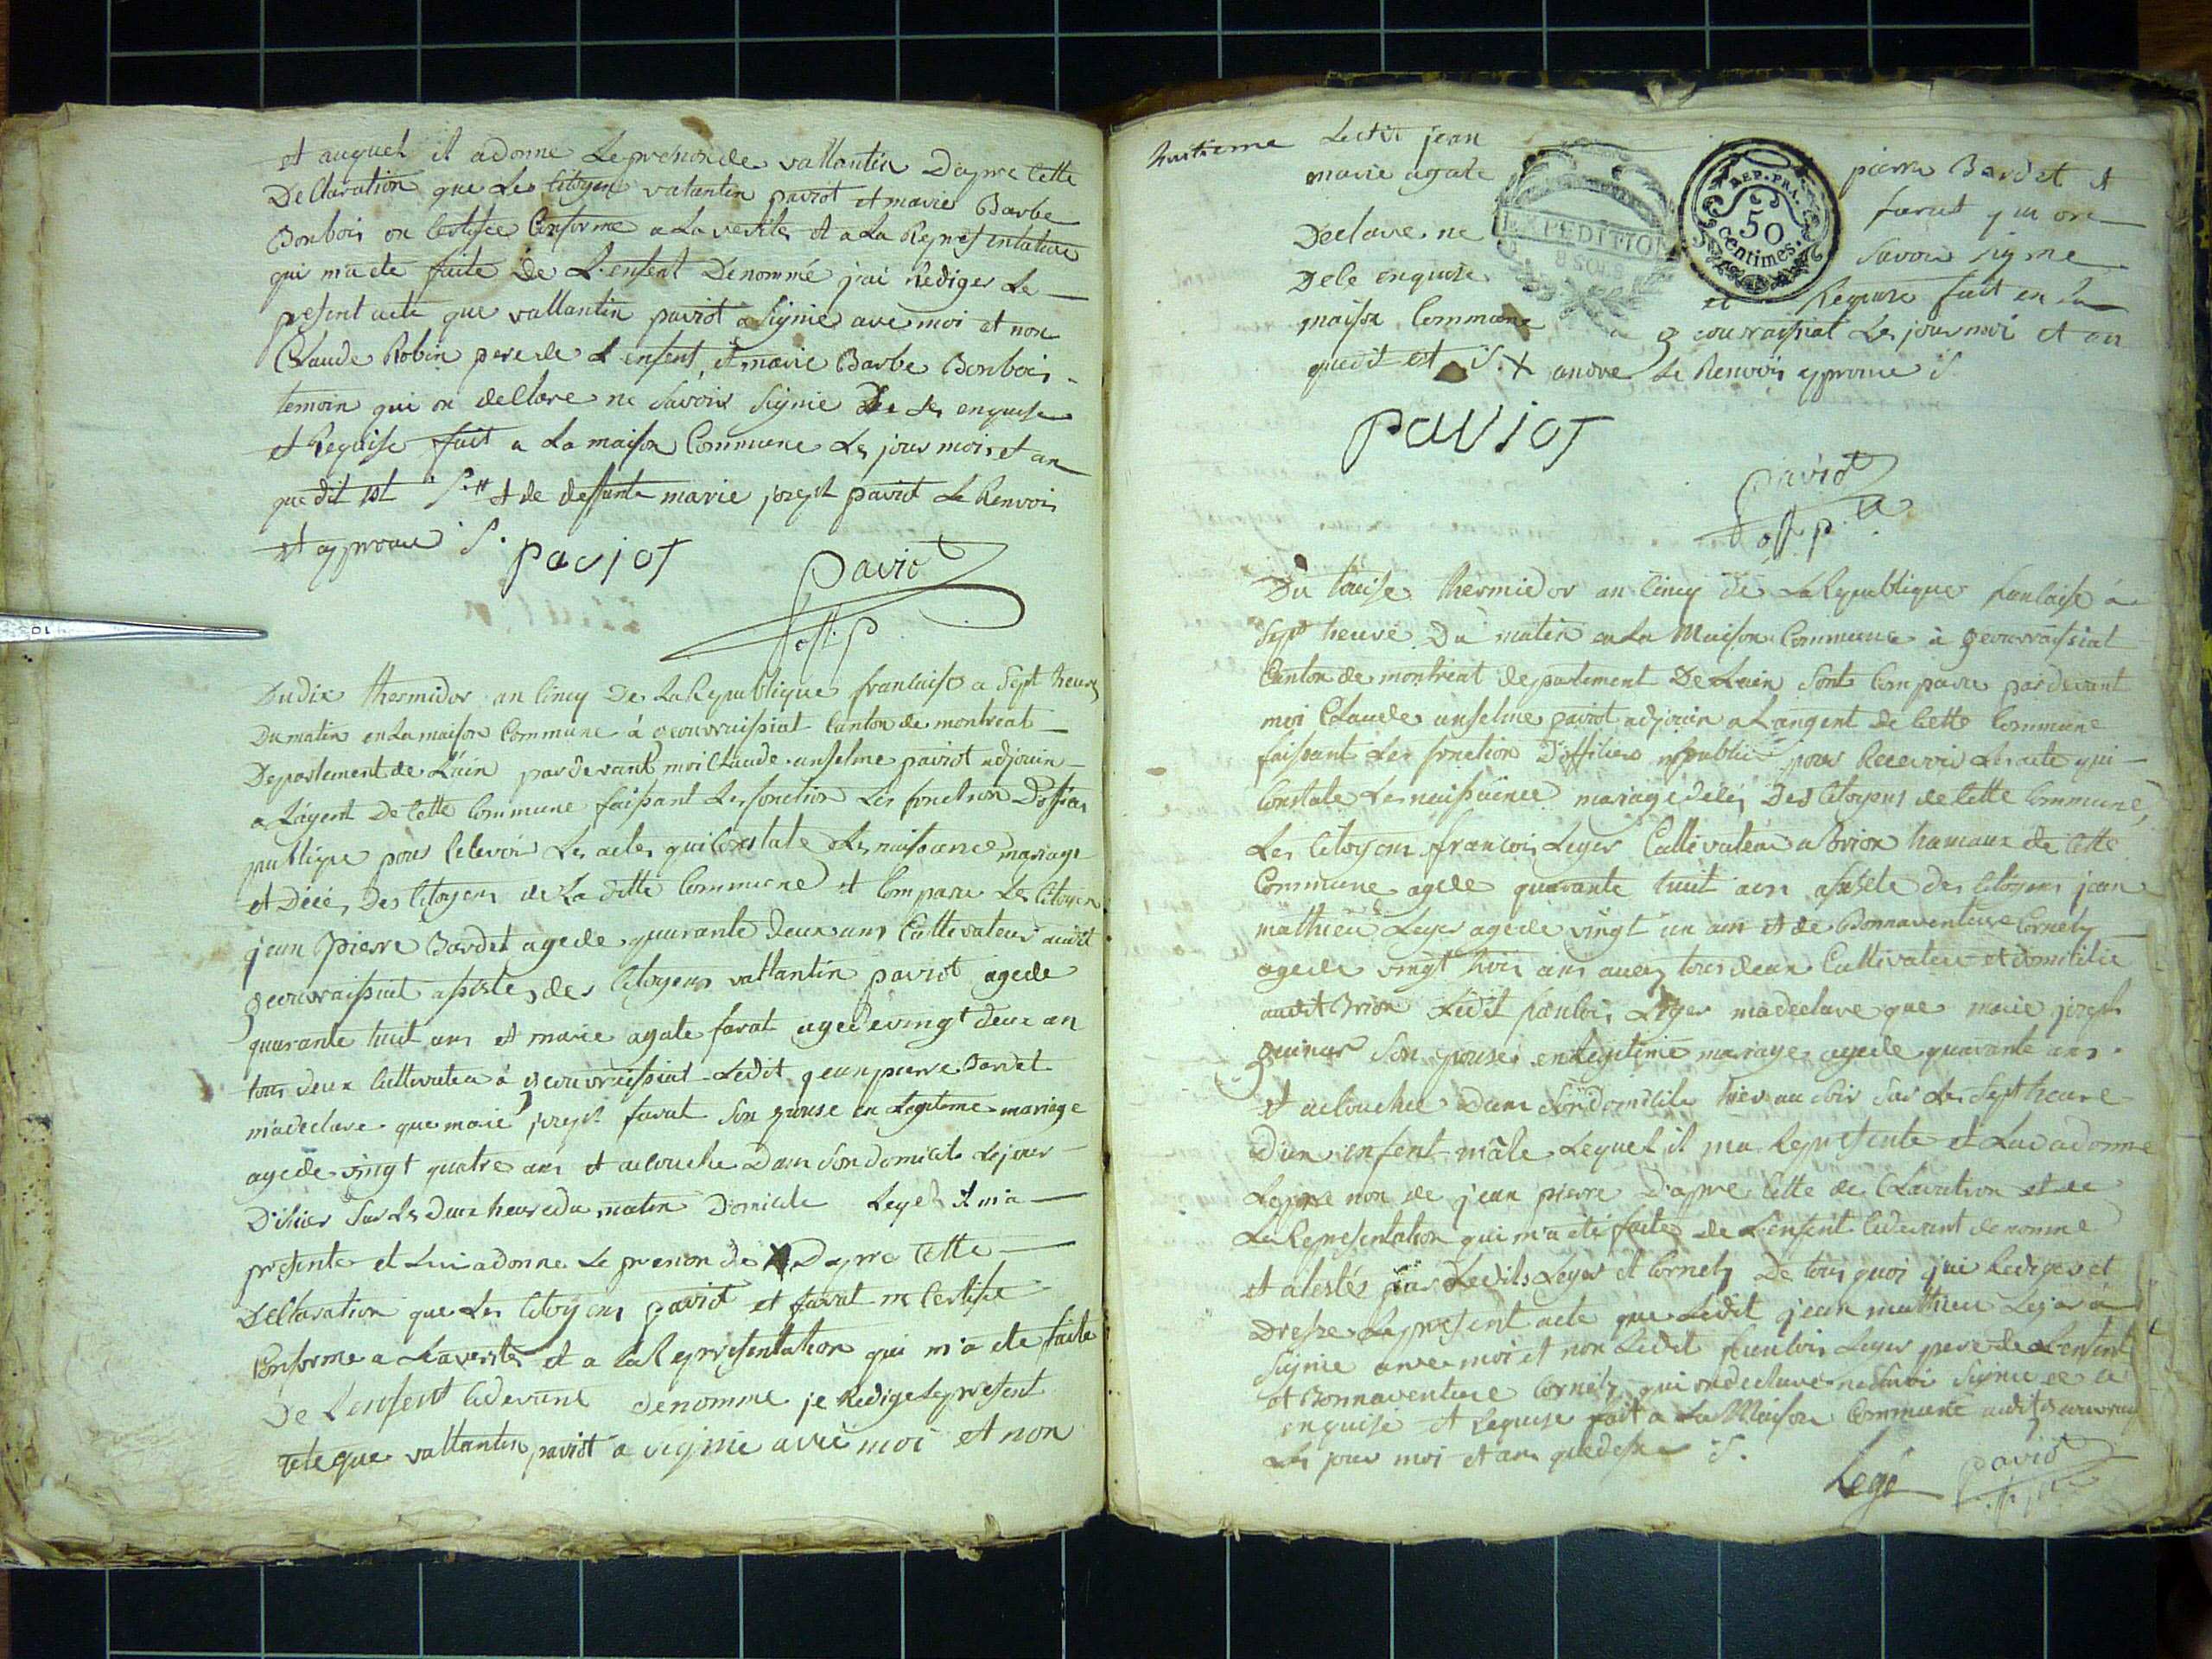 et auquel il a donne Le prenom de vallantin Dapre Cette
Declaration que Les Citoyen vatantin paviot et marie Barbe
Bonbois on Certifie Conforme a La verite et a La Representation
qui m'a ete faite De L'enfent Denommé j'ai Rediger Le
present acte que vallantin paviot a Signie avec moi et non
Claude Robin pere de L'enfent, et marie Barbe Bonbois
temoin qui on declare ne Savoir Signie De Ses enquise
et Requise fait a La maison Commune Les jour mois et an
que dit est S.rr + de deffunte marie jozept paviot Le Renvois
et approuve S. paviot
Paviot
off. p
Du dix thermidor an Cinq De La Republique francaise a Sept heure
Du matin en La maison Commune à geouvraissiat Canton de montreat
Departement de L'ain par devant moi Claude anselme paviot adjouin
a L'agent De Cette Commune faissant Les fonction Les fonction D'offier
publique pour Celevoir Les actes qui Constate Les naissance mariage
et Décé, Des Citoyens de La ditte Commune et Compare Les Citoyen
jean Pierre Bardet age de quarante Deux ans Cultivateur audit
geouvraissiat assiste, des Citoyens vallantin paviot age de
quarante huit ans et marie agate farat age de vingt deux an
tous deux Cultivateur à geouvraissiat Ledit jean pierre Bardet
m'a declare que marie jozept farat Son epouse en Legitime mariage
age de vingt quatre ans et acouche Dans Son domicile Le jour
D'ihier Sur Les deux heure du matin Domicile Lequel il m'a
presente et Lui a donne Le prenom de X Dapre Cette
Declaration que Les Citoyens paviot et farat m Certifie
Conforme a La verite et a La Representation qui m'a ete faite
De L'enfent Cidevant denomme je Redige Le present
acte que vallantin paviot a signie avec moi et non
huitieme Ledit jean pierre Bardet et
marie agate farat qui on
Declare ne Savoir signe
De Ce enquise et Requise fait en La
maison Commune a geouvraissiat Les jour moi et an
que dit est S. X andre Le Renvois approuve S.
EXPEDITION
8 SOLS
REP. FRA.
50
centimes.
paviot
Paviot
off. p.
Du treise thermidor an Cinq de La Republique francaise à
Sept heure Du matin en La Maison Commune à geouvraissiat
Canton de montreat departement De Lain Sont Compare par devant
moi Claude anselme paviot adjouin a L'angent de Cette Commune
faissant Les fonction D'officier publie pour Recevoir Les acte qui
Constate Les naissance mariage décés Des Citoyens de Cette Commune,
Les Citoyens francois Leger Cultivateur a Brion hamaux de Cette
Commune age de quarante huit ans assiste des Citoyens jean
mathieu Leger age de vingt un ans et de Bonnaventure Cornety
age de vingt trois ans tous deux Cultivateur et domicilie
audit Brion Ledit francois Leger m'a declare que marie jozept
Son epouse en Legitime mariage age de quarante ans
et acouchee dans Son domicile hier au soir Sur Les Sept heure
D'un enfent mâle Lequel il ma Representé et Lui a donne
Le pre nom de jean pierre D'apre Cette de Claration et de
La Representation qui m'a été faite de L'enfent Cidevant denomme
et atestés par Ledits Leger et Cornety De tous quoi j'ai Rediger et
Dresse Le present acte que Ledit jean mathieu Leger a
Signie avec moi et non Ledit francois Leger pere de L'enfent
et Bonnaventure Cornety qui on declare ne Savoir Signie de Ce
enquise et Requise fait a La Maison Commune audit geouvrai
Les jour moi et an que dessus S.
Legé Paviot